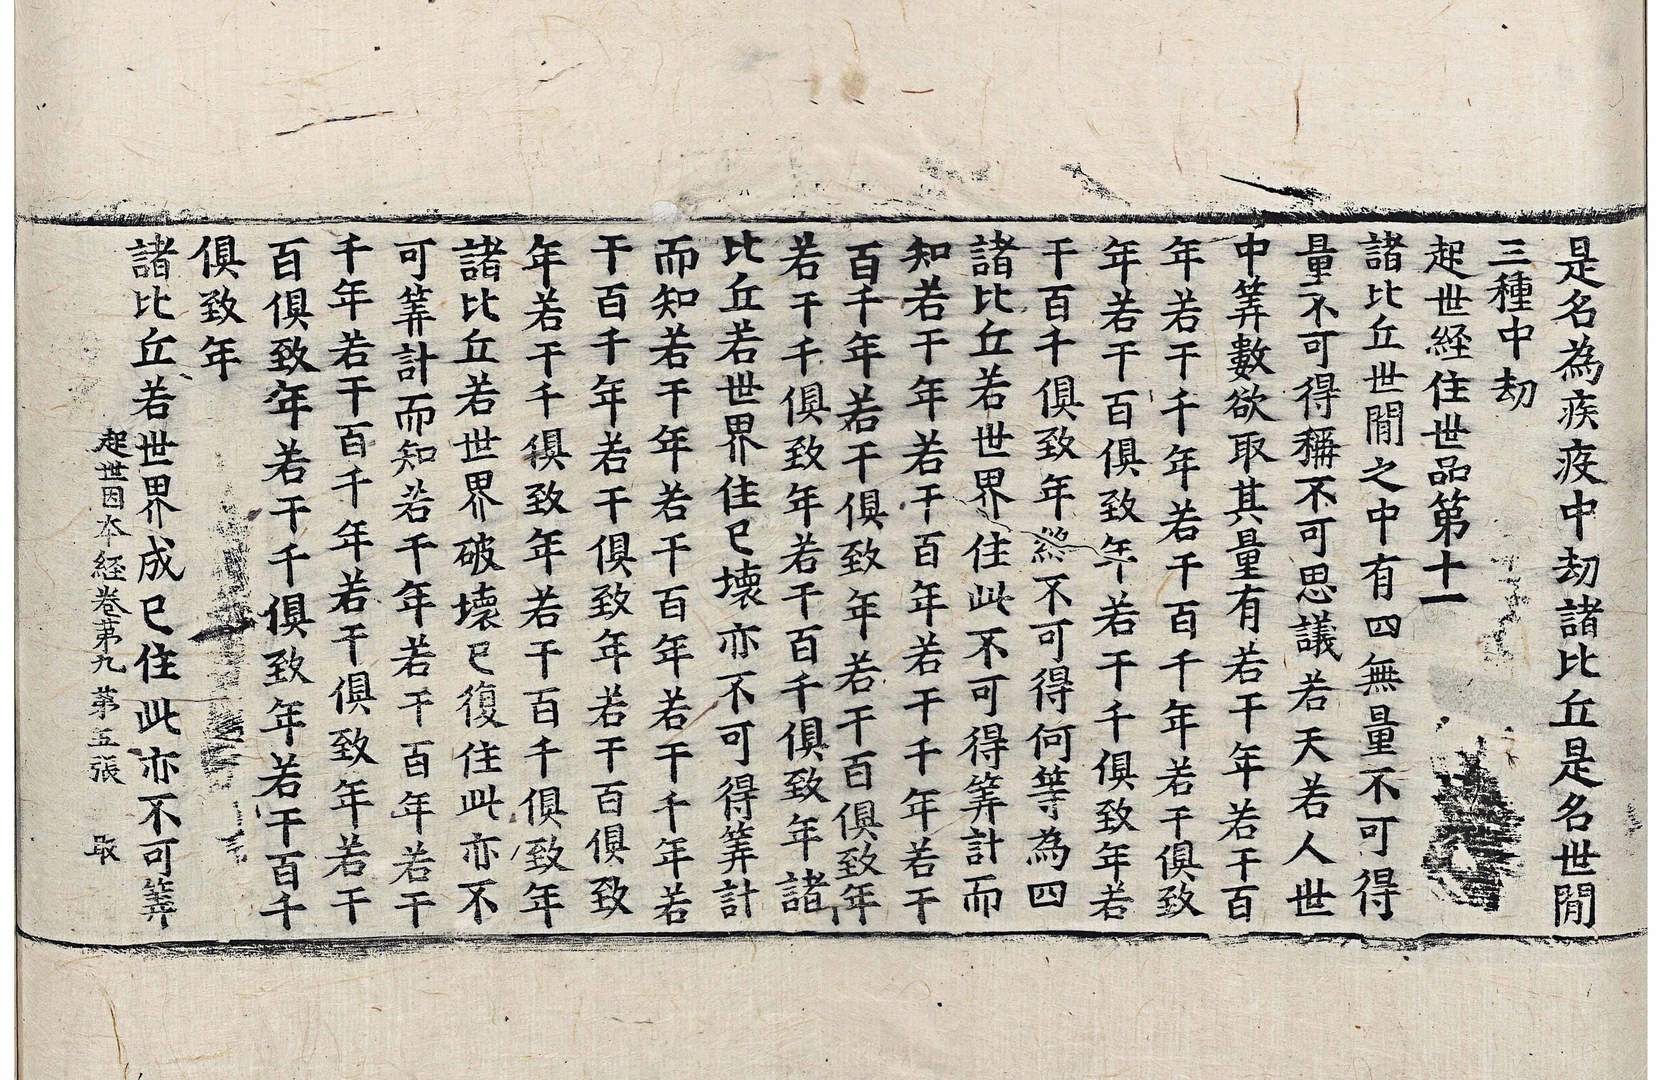 是名為疾疫中劫諸比丘是名世閒
三種中劫
起世経住世品第十一
諸比丘世閒之中有四無量不可得
量不可得稱不可思議若天若人世
中筭數欲取其量有若干年若干百
年若干千年若干百千年若干俱致
年若干百俱致年若干千俱致年若
干百千俱致年終不可得何等為四
諸比丘若世界住此不可得筭計而
知若干年若干百年若干千年若干
百千年若干俱致年若干百俱致年
若干千俱致年若干百千俱致年諸
比丘若世界住已壞亦不可得筭計
而知若干年若干百年若干千年若
干百千年若干俱致年若干百俱致
年若干千俱致年若干百千俱致年
諸比丘若世界破壞已復住此亦不
可筭計而知若干年若干百年若干
千年若干百千年若干俱致年若干
百俱致年若干千俱致年若干百千
俱致年
諸比丘若世界成已住此亦不可筭
起世因夲経卷苐九 苐五張 取